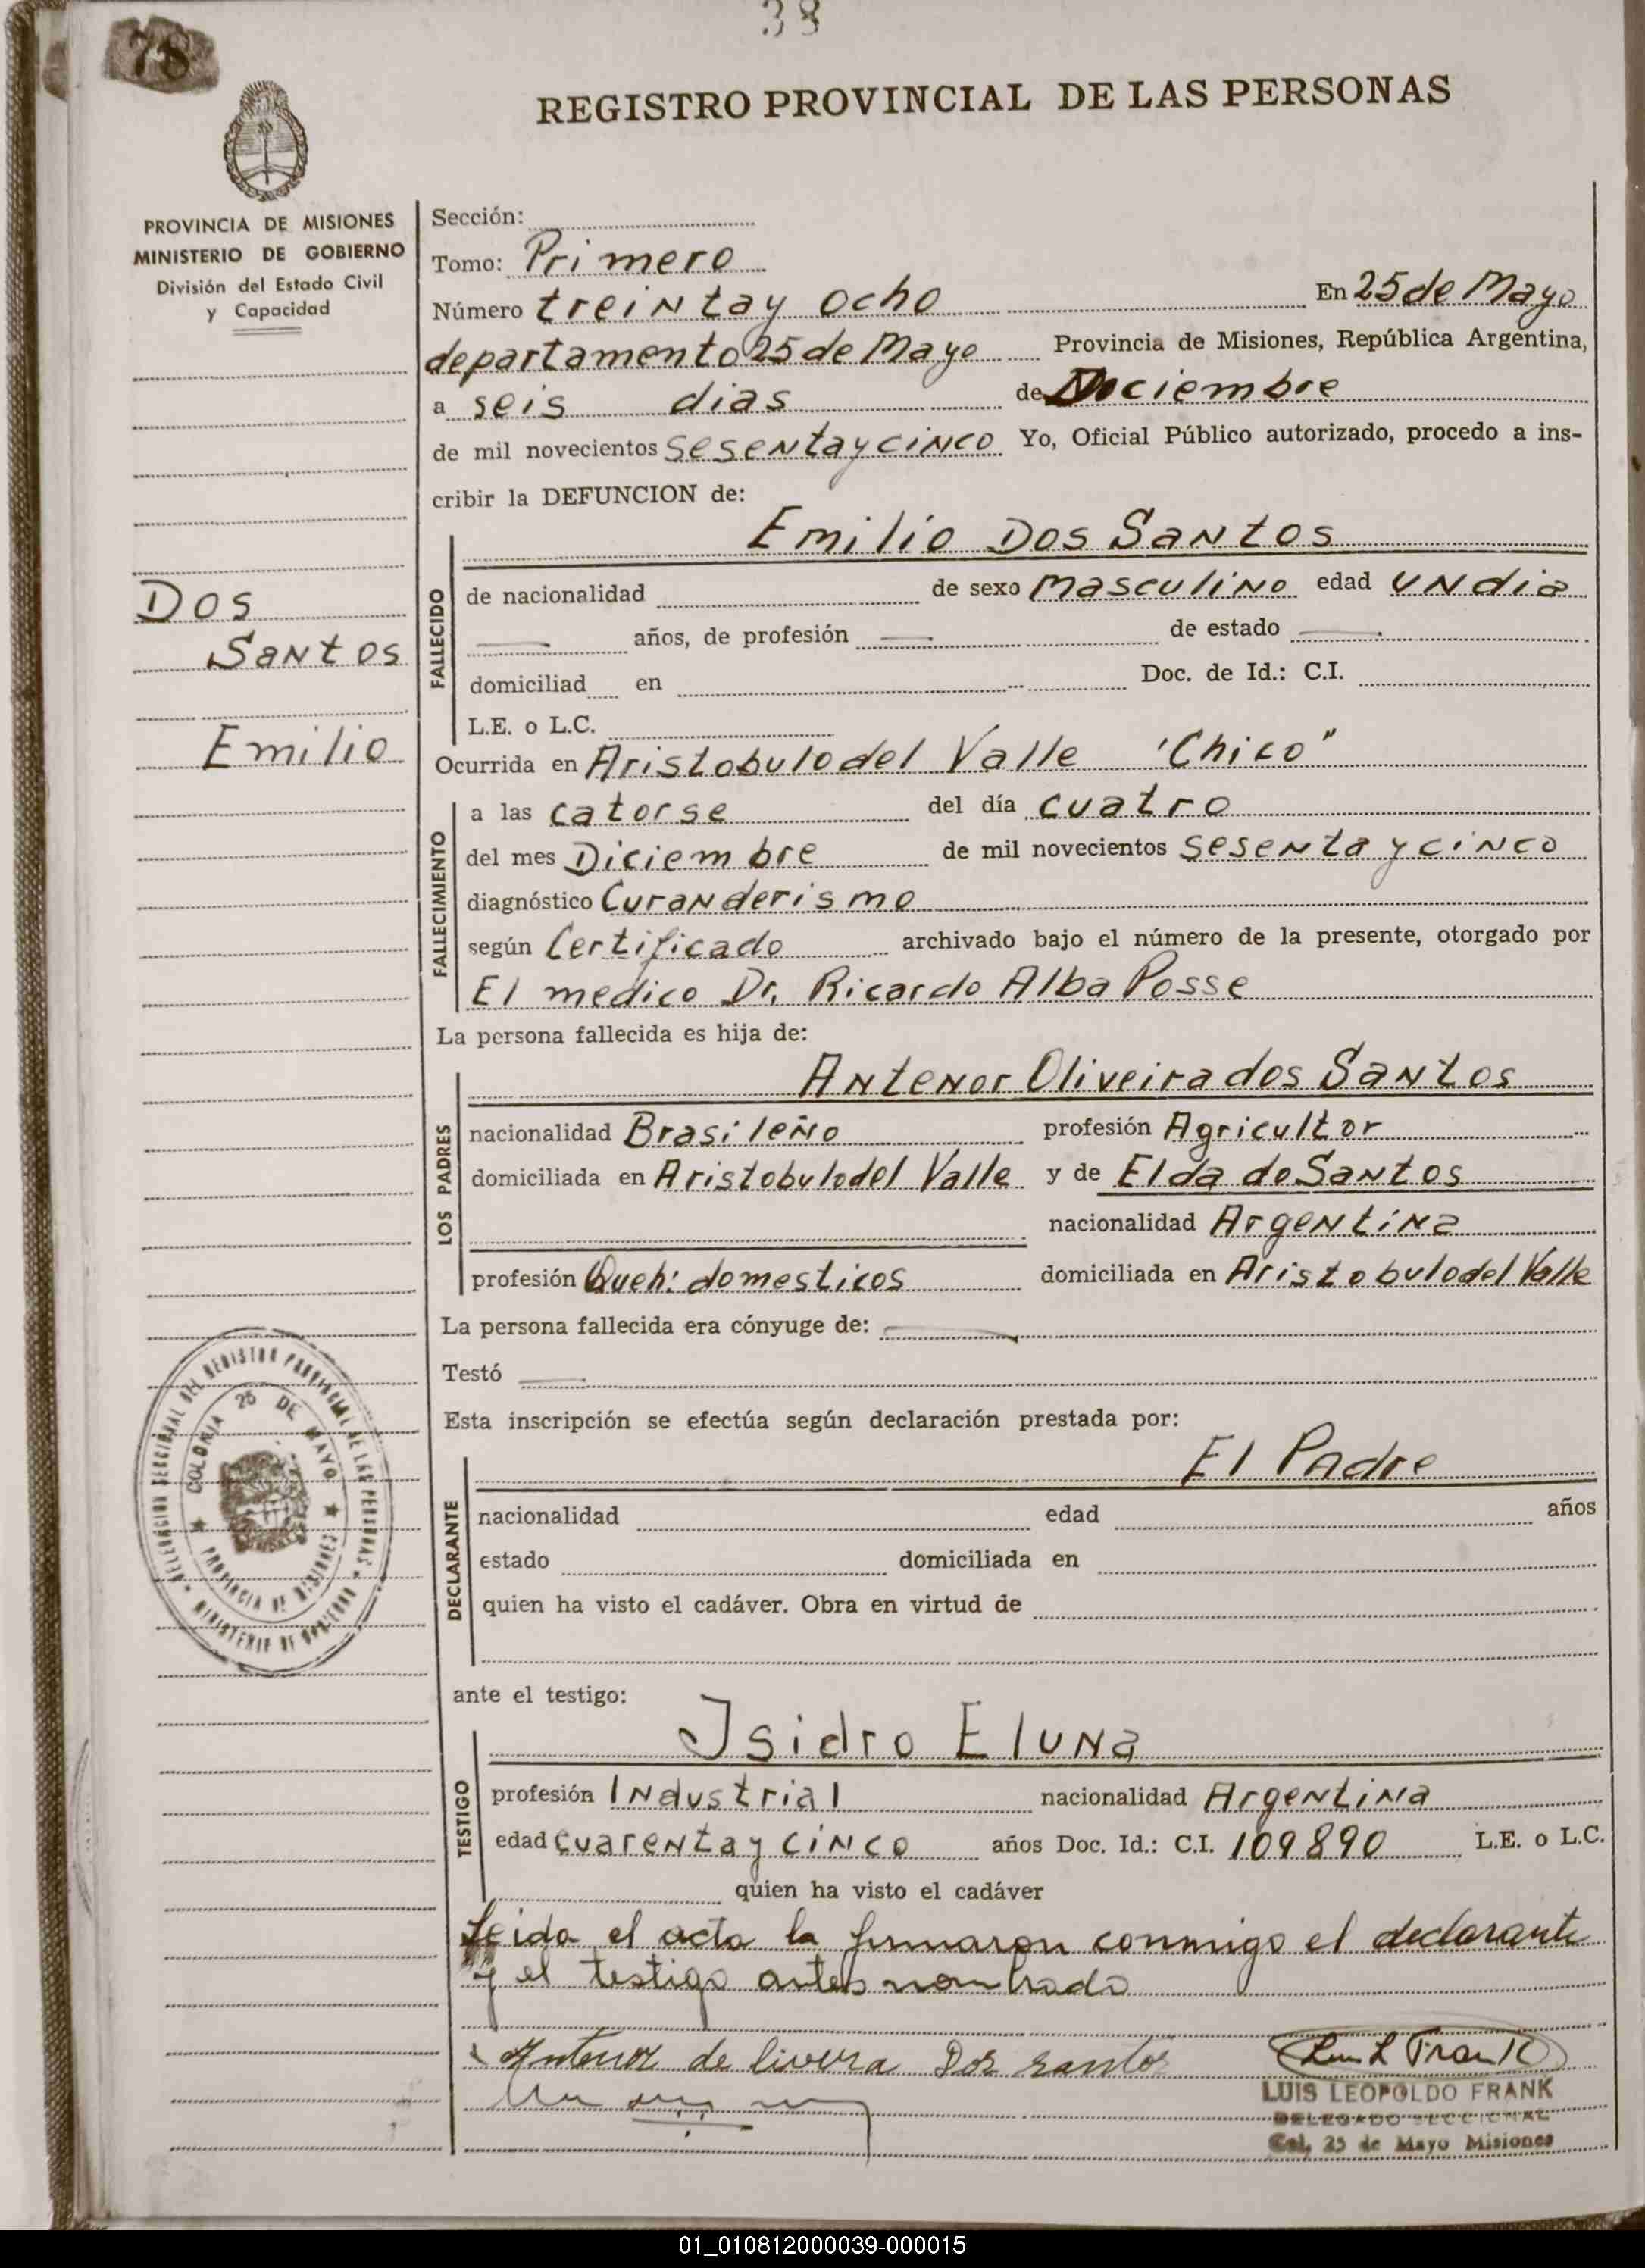 38
78
REGISTRO PROVINCIAL DE LAS PERSONAS
PROVINCIA DE MISIONES
MINISTERIO DE GOBIERNO
División del Estado Civil
y Capacidad
Dos
Santos
Emilio
Sección:
Tomo: Primero
Número treinta y ocho En 25 de Mayo
departamento 25 de Mayo Provincia de Misiones, República Argentina,
a seis dias de Diciembre
de mil novecientos sesenta y cinco Yo, Oficial Público autorizado, procedo a ins-
cribir la DEFUNCION de:
Emilio Dos Santos
FALLECIDO
de nacionalidad de sexo masculino edad un dia
años, de profesión de estado
domiciliad en Doc. de Id.: C.I.
L.E. o L.C.
Ocurrida en Aristobulo del Valle 'Chico"
FALLECIMIENTO
a las catorse del día cuatro
del mes Diciembre de mil novecientos sesenta y cinco
diagnóstico Curanderismo
según Certificado archivado bajo el número de la presente, otorgado por
El medico Dr. Ricardo Alba Posse
La persona fallecida es hija de:
Antenor Oliveira dos Santos
LOS PADRES
nacionalidad Brasileño profesión Agricultor
domiciliada en Aristobulo del Valle y de Elda do Santos
nacionalidad Argentina
profesión Queh: domesticos domiciliada en Aristobulo del Valle
La persona fallecida era cónyuge de:
Testó
Esta inscripción se efectúa según declaración prestada por:
El Padre
DECLARANTE
nacionalidad edad años
estado domiciliada en
quien ha visto el cadáver. Obra en virtud de
DELEGACION SECCIONAL DEL REGISTRO PROVINCIAL DE LAS PERSONAS
MINISTERIO DE GOBIERNO
COLONIA 25 DE MAYO
PROVINCIA DE MISIONES
ante el testigo:
Isidro E luna
TESTIGO
profesión Industrial nacionalidad Argentina
edad cuarenta y cinco años Doc. Id.: C.I. 109890 L.E. o L.C.
quien ha visto el cadáver
Leida el acta la firmaron conmigo el declarante
y el testigo antes nombrado
Antenor de livera Dos santos
Luis L Frank
LUIS LEOPOLDO FRANK
DELEGADO SECCIONAL
Col. 25 de Mayo Misiones
01_010812000039-000015